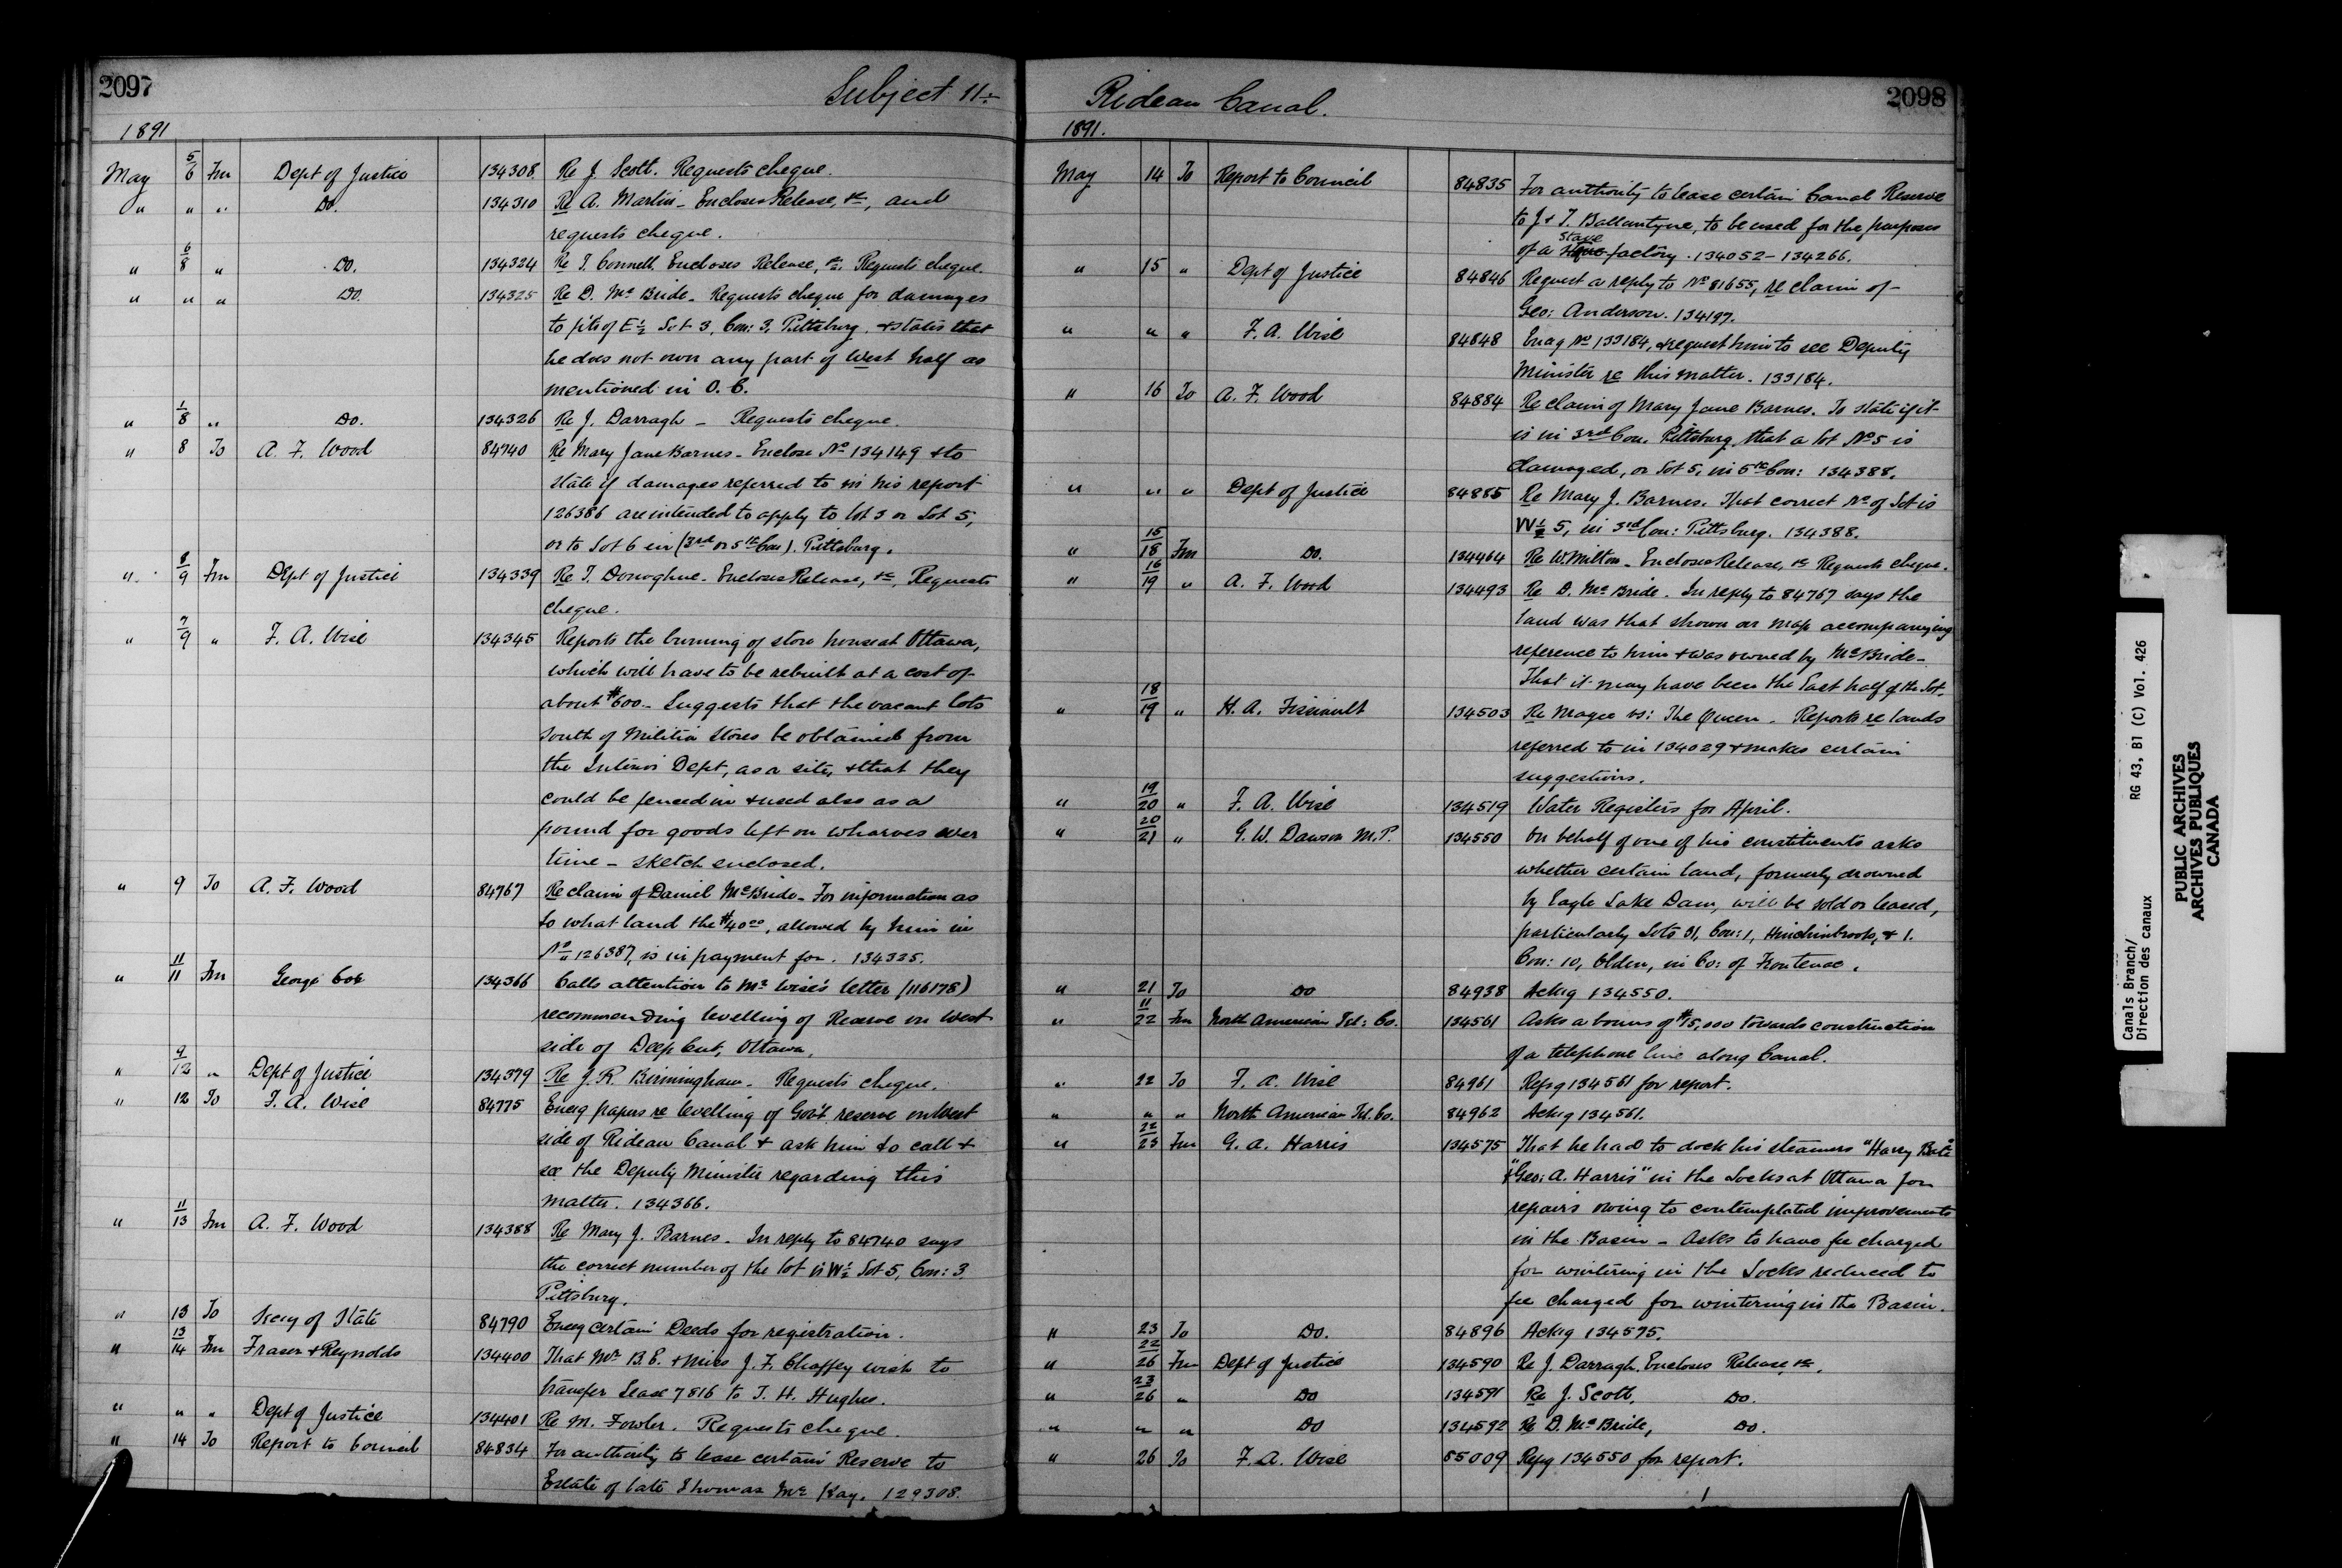 2097
Subject 11:-
1891
May 5/6 Fm Dept of Justice 134308 Re J. Scott. Requests cheque.
" " " Do. 134310 Re A. Martin - Encloses Release, &c, and
requests cheque.
" 6/8 " Do. 134324 Re T. Connell. Encloses Release, &c. Requests cheque.
" " " Do. 134325 Re D. McBride. Requests cheque for damages
to pt. of E½ Lot 3, Con: 3, Pittsburg, & states that
he does not own any part of West half as
mentioned in O.C.
" 1/8 " Do. 134326 Re J. Darragh - Requests cheque.
" 8 To A. F. Wood 84740 Re Mary Jane Barnes - Enclose No 134149 & to
state if damages referred to in his report
126386 are intended to apply to lot 3 or Lot 5,
or to Lot 6 in (3rd or 5th Con). Pittsburg.
" 8/9 Fm Dept of Justice 134339 Re T. Donoghue - Encloses Release, &c, Requests
cheque.
" 7/9 " F. A. Wise 134345 Reports the burning of store house at Ottawa,
which will have to be rebuilt at a cost of
about $600 - Suggests that the vacant lots
South of Militia Stores be obtained from
the Interior Dept, as a site, & that they
could be fenced in & used also as a
pound for goods left on wharves over
time - sketch enclosed.
" 9 To A. F. Wood 84767 Re claim of Daniel McBride - For information as
to what land the $40.00, allowed by him in
No 126387, is in payment for. 134325.
" 11/11 Fm George Cox 134366 Calls attention to Mr Wise's letter (116178)
recommending levelling of Reserve on West
side of Deep Cut, Ottawa.
" 9/12 " Dept of Justice 134379 Re J. R. Birmingham - Requests cheque.
" 12 To F. A. Wise 84775 Encg papers re levelling of Gov't reserve on West
side of Rideau Canal & ask him to call &
see the Deputy Minister regarding this
matter. 134366.
" 11/13 Fm A. F. Wood 134388 Re Mary J. Barnes - In reply to 84740 says
the correct number of the lot is W½ Lot 5, Con: 3
Pittsburg.
" 13 To Secy of State 84790 Encg certain Deeds for registration.
" 13/14 Fm Fraser & Reynolds 134400 That Mr B. E. & Miss J. F. Chaffey wish to
transfer Lease 7816 to T. H. Hughes.
" " " Dept of Justice 134401 Re M. Fowler. Requests cheque.
" 14 To Report to Council 84834 For authority to lease certain Reserve to
Estate of late Thomas McKay. 129308.
Rideau Canal.
2098
1891.
May 14 To Report to Council 84835 For authority to lease certain Canal Reserve
to J & T. Ballantyne, to be used for the purposes
of a Stave factory. 134052 - 134266.
" 15 " Dept of Justice 84846 Request a reply to No 81655, re claim of
Geo: Anderson. 134197.
" " " F. A. Wise 84848 Encg No 133184, & request him to see Deputy
Minister re this matter. 133184.
" 16 To A. F. Wood 84884 Re claim of Mary Jane Barnes. To state if it
is in 3rd Con. Pittsburg, that a lot No 5 is
damaged, or Lot 5, in 5th Con: 134388.
" " " Dept of Justice 84885 Re Mary J. Barnes. That correct No of Lot is
W½ 5, in 3rd Con: Pittsburg. 134388.
" 15/18 Fm Do. 134464 Re W. Milton - Encloses Release, &c Requests cheque.
" 16/19 " A. F. Wood 134493 Re D. McBride. In reply to 84767 says the
land was that shown on map accompanying
reference to him & was owned by McBride -
That it may have been the East half of the Lot.
" 18/19 " H. A. Fissiault 134503 Re Magee vs: The Queen. Reports re lands
referred to in 134029 & makes certain
suggestions.
" 19/20 " F. A. Wise 134519 Water Registers for April.
" 20/21 " G. W. Dawson M.P. 134550 On behalf of one of his constituents asks
whether certain land, formerly drowned
by Eagle Lake Dam, will be sold or leased,
particularly Lots 31, Con: 1, Hinchinbrooke, & 1.
Con: 10, Olden, in Co: of Frontenac.
" 21 To Do 84938 Ackg 134550.
" 11/22 Fm North American Tel: Co. 134561 Asks a bonus of $15,000 towards construction
of a telephone line along Canal.
" 22 To F. A. Wise 84961 Refg 134561 for report.
" " " North American Tel. Co. 84962 Ackg 134561.
" 22/23 Fm G. A. Harris 134575 That he had to dock his steamers "Harry Bate"
& "Geo: A. Harris" in the Locks at Ottawa for
repairs owing to contemplated improvements
in the Basin - Asks to have fee charged
for wintering in the Locks reduced to
fee charged for wintering in the Basin.
" 23 To Do. 84896 Ackg 134575.
" 22/26 Fm Dept of Justice 134590 Re J. Darragh. Encloses Release, &c.
" 23/26 " Do 134591 Re J. Scott. Do.
" " " Do 134592 Re D. McBride, Do.
" 26 To F. A. Wise 85009 Refg 134550 for report.
Canals Branch/
Direction des canaux
RG 43, B1 (C) Vol. 426
PUBLIC ARCHIVES
ARCHIVES PUBLIQUES
CANADA